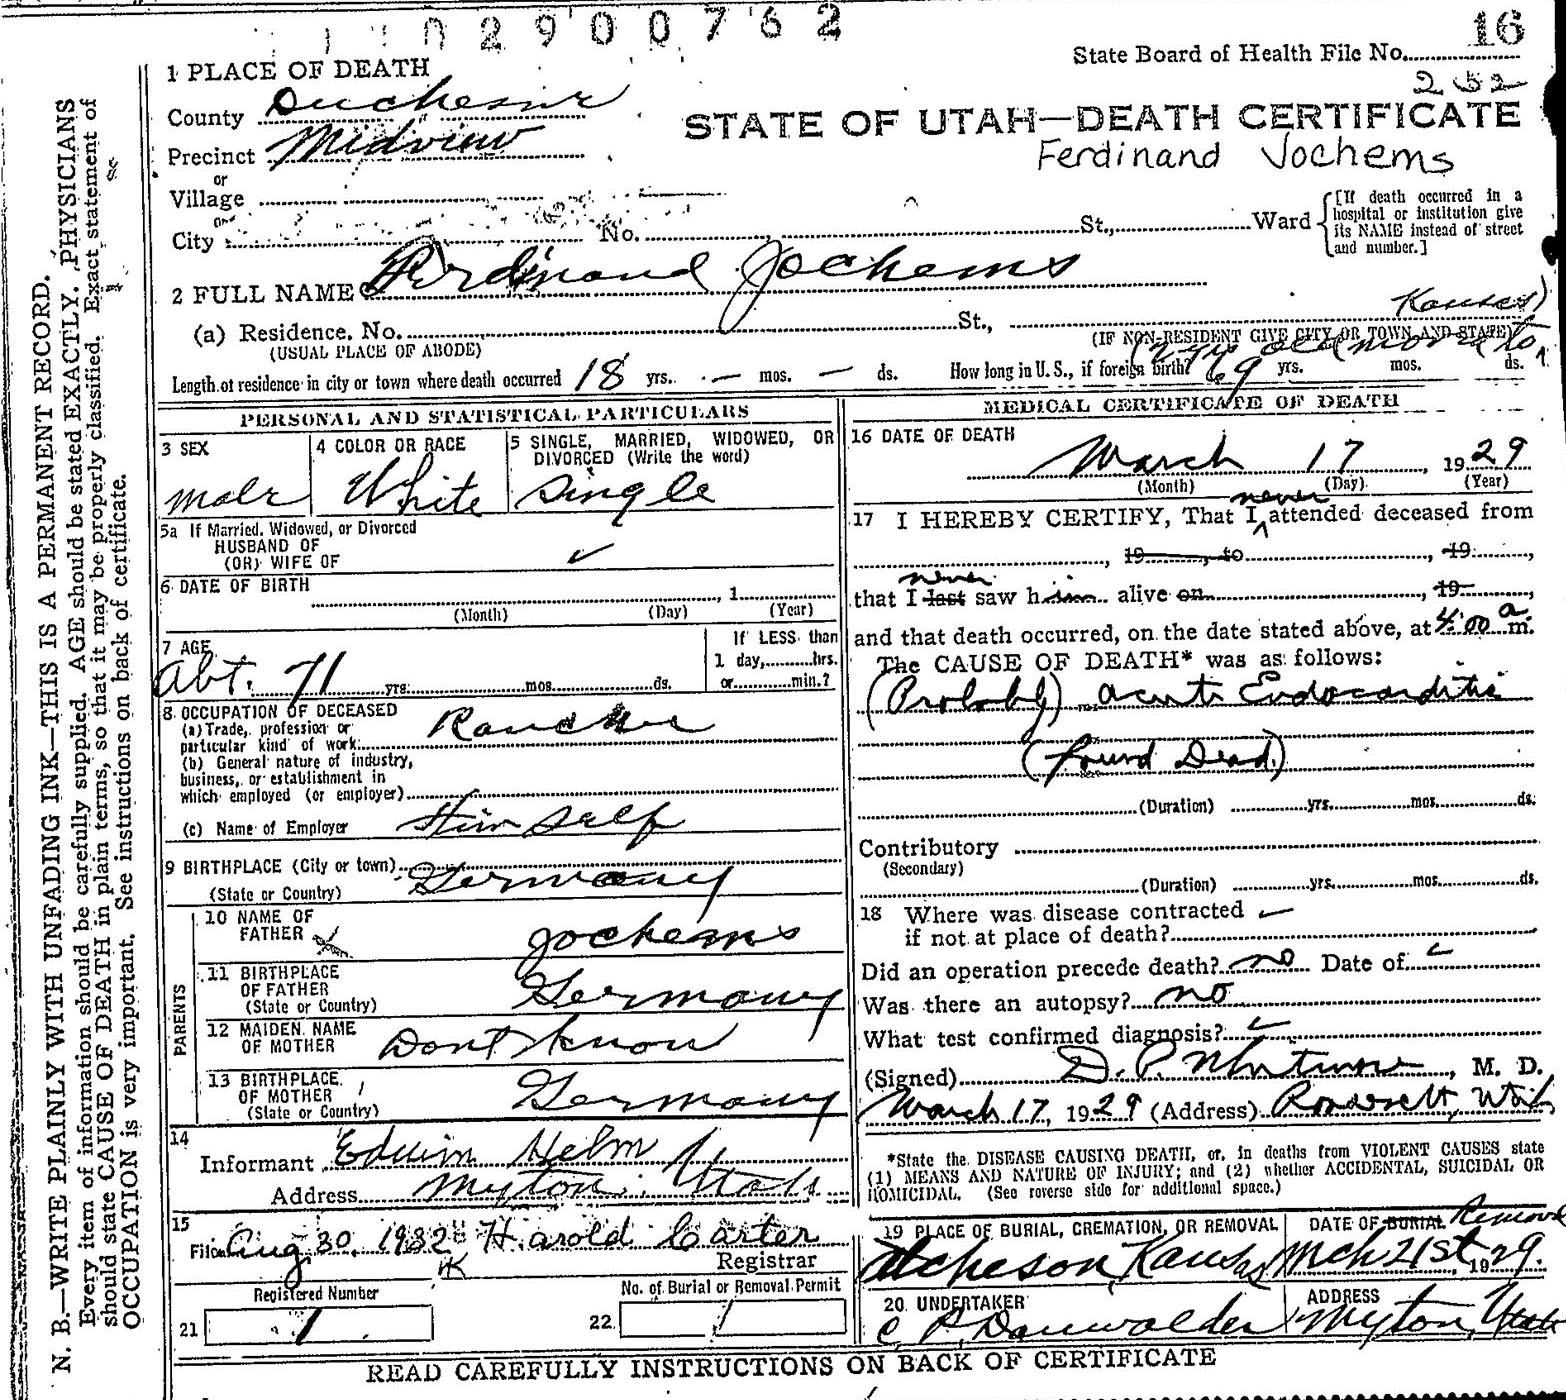 02900762
State Board of Health File No. 16
252
1 PLACE OF DEATH
County Duchesne
STATE OF UTAH—DEATH CERTIFICATE
Precinct Midview
Ferdinand Jochems
or
Village
or
City No. St., Ward
[If death occurred in a hospital or institution give its NAME instead of street and number.]
2 FULL NAME Ferdinand Jochems
(a) Residence. No. St., Kansas)
(USUAL PLACE OF ABODE)
(IF NON-RESIDENT GIVE CITY OR TOWN AND STATE)
(2 yrs old moved to
Length of residence in city or town where death occurred 18 yrs. — mos. — ds. How long in U. S., if foreign birth? 69 yrs. mos. ds.
PERSONAL AND STATISTICAL PARTICULARS
3 SEX
male
4 COLOR OR RACE
White
5 SINGLE, MARRIED, WIDOWED, OR DIVORCED (Write the word)
Single
5a If Married, Widowed, or Divorced
HUSBAND OF
(OR) WIFE OF
6 DATE OF BIRTH , 1
(Month) (Day) (Year)
7 AGE
Abt. 71 yrs. mos. ds.
If LESS than
1 day, hrs.
or min.?
8 OCCUPATION OF DECEASED
(a) Trade, profession or
particular kind of work: Rancher
(b) General nature of industry,
business, or establishment in
which employed (or employer)
(c) Name of Employer Him self
9 BIRTHPLACE (City or town)
(State or Country) Germany
PARENTS
10 NAME OF
FATHER Jochems
11 BIRTHPLACE
OF FATHER
(State or Country) Germany
12 MAIDEN NAME
OF MOTHER Dont know
13 BIRTHPLACE
OF MOTHER
(State or Country) Germany
14
Informant Edwin Helm
Address Myton, Utah
15
Filed Aug 30, 1932 Harold Carter
Registrar
Registered Number
21 1
No. of Burial or Removal Permit
22 1
MEDICAL CERTIFICATE OF DEATH
16 DATE OF DEATH
March 17, 1929
(Month) (Day) (Year)
never
17 I HEREBY CERTIFY, That I attended deceased from
, 19 , to , 19 ,
never
that I last saw him alive on , 19 ,
and that death occurred, on the date stated above, at 4:00 a m.
The CAUSE OF DEATH* was as follows:
(Probably) acute Endocarditis
(found Dead)
(Duration) yrs. mos. ds.
Contributory
(Secondary)
(Duration) yrs. mos. ds.
18 Where was disease contracted
if not at place of death?
Did an operation precede death? no Date of
Was there an autopsy? no
What test confirmed diagnosis?
(Signed) D. P. Whitmore, M. D.
March 17, 1929 (Address) Roosevelt, Utah
*State the DISEASE CAUSING DEATH, or, in deaths from VIOLENT CAUSES state
(1) MEANS AND NATURE OF INJURY; and (2) whether ACCIDENTAL, SUICIDAL OR
HOMICIDAL. (See reverse side for additional space.)
19 PLACE OF BURIAL, CREMATION, OR REMOVAL
Atcheson, Kansas
DATE OF BURIAL Removal
Mch 21st, 1929.
20 UNDERTAKER
C P. Dauwalder
ADDRESS
Myton, Utah
READ CAREFULLY INSTRUCTIONS ON BACK OF CERTIFICATE
N. B.—WRITE PLAINLY WITH UNFADING INK—THIS IS A PERMANENT RECORD.
Every item of information should be carefully supplied. AGE should be stated EXACTLY. PHYSICIANS
should state CAUSE OF DEATH in plain terms, so that it may be properly classified. Exact statement of
OCCUPATION is very important. See instructions on back of certificate.